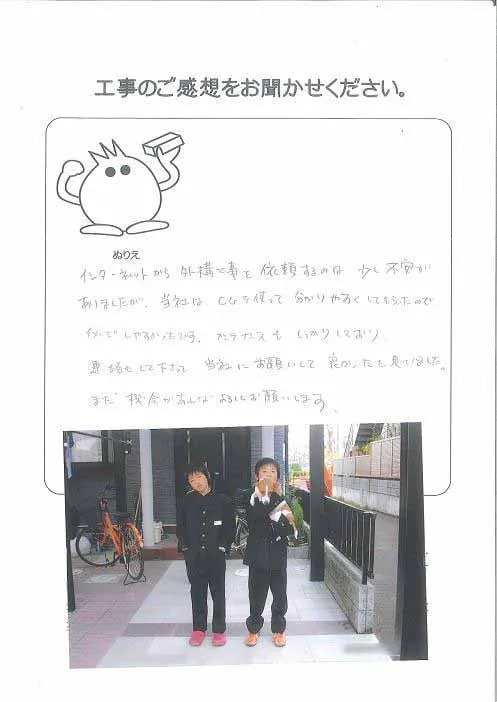 工事のご感想をお聞かせください。
ぬりえ
インターネットから 外構工事を 依頼するのは 少し 不安が
ありましたが、当社は、CGを使って 分かりやすくしてもらったので
イメージしやすかったです。メンテナンスも しっかりしており、
して下さって 当社にお願いして 良かったと思いました。
また 機会があれば よろしくお願いします。